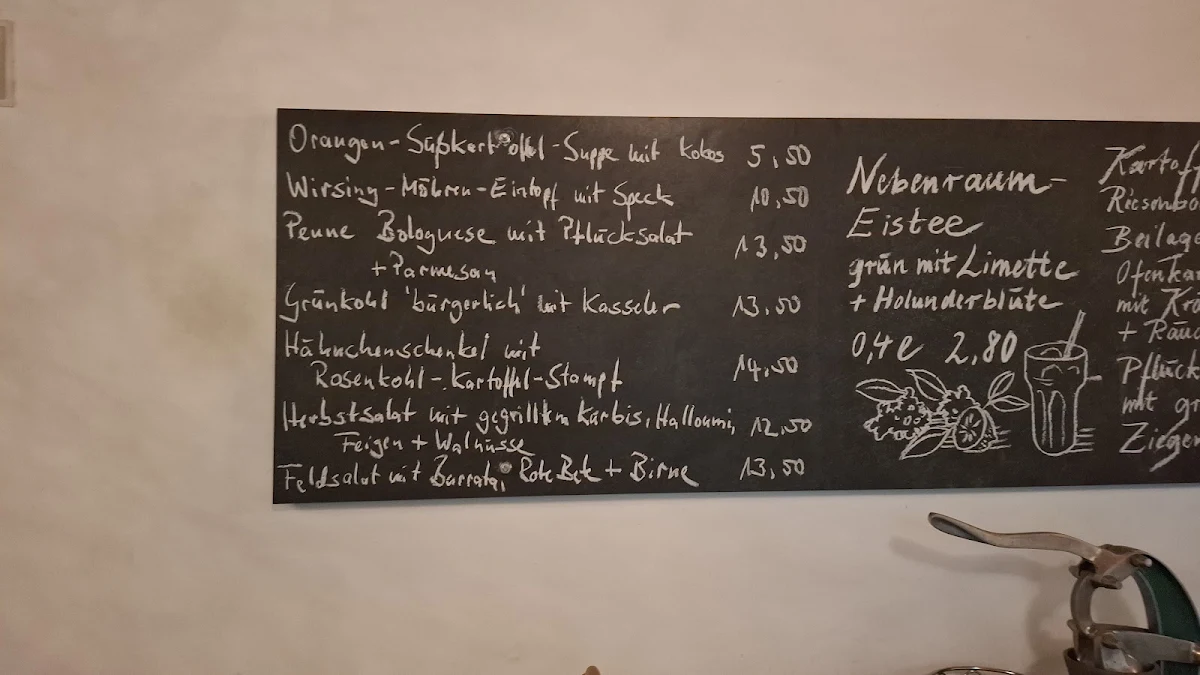 Orangen-Süßkartoffel-Suppe mit Kokos 5,50
Wirsing-Möhren-Eintopf mit Speck 10,50
Penne Bolognese mit Pflücksalat 13,50
+ Parmesan
Grünkohl 'bürgerlich' mit Kasseler 13,50
Hähnchenschenkel mit
Rosenkohl-Kartoffel-Stampf 14,50
Herbstsalat mit gegrilltem Kürbis, Halloumi, 12,50
Feigen + Walnüsse
Feldsalat mit Burrata, Rote Bete + Birne 13,50
Nebenraum-
Eistee
grün mit Limette
+ Holunderblüte
0,4 l 2,80
Kartoff
Riesenbo
Beilage
Ofenkar
mit Krä
+ Räuc
Pflück
mit gr
Ziegen